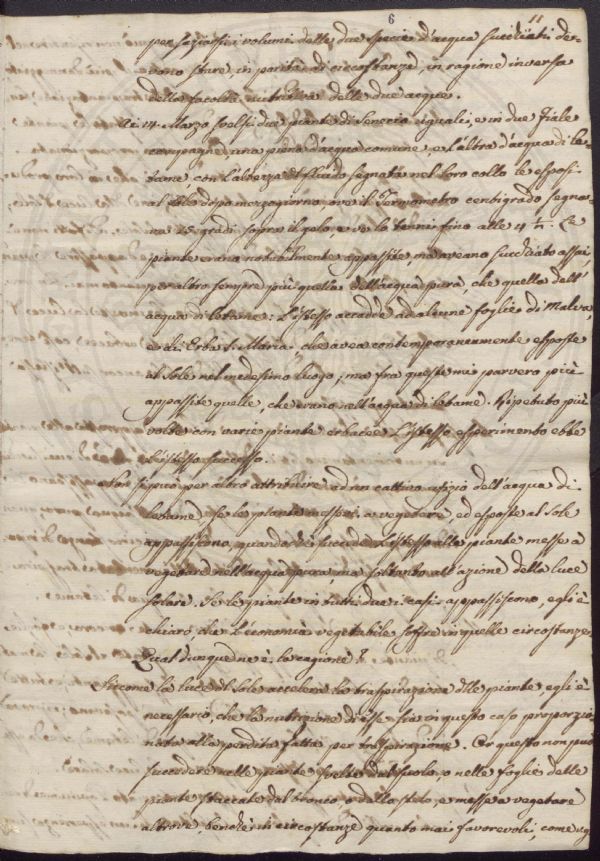 6 11
per saziarsi i volumi delle due specie d'acqua succhiati de-
vono stare, in parità di circostanze, in ragione inversa
della facoltà nutritiva delle due acque.
Ai 14. Marzo svelsi due piante di Senecio eguali, e in due fiale
compagne una piena d'acqua comune, e l'altra d'acqua di le-
tame con l'altezza del fluido segnata nel loro collo le esposi
al Sole dopo mezzogiorno, ove il Termometro centigrado segna-
va 25 gradi sopra il gelo, e ve le tenni fino alle 4 Le
piante erano notabilmente appassite, ma aveano succhiato assai,
per altro sempre più quella dell'acqua pura, che quella dell'
acqua di letame: L'istesso accadde ad alcune foglie di Malva,
e di Erba S. Maria, che avea contemporaneamente esposte
al Sole nel medesimo luogo, ma fra queste mi parvero più
appassite quelle, che erano nell'acqua di letame. Ripetuto più
volte con varie piante erbacee l'istesso esperimento ebbe
l'istesso successo.
Non si può per altro attribuire ad un cattivo ufizio dell'acqua di
letame, se le piante messevi a vegetare ed esposte al Sole
appassiscono, quando ciò succede l'istesso alle piante messe a
vegetare nell'acqua pura, ma soltanto all'azione della luce
solare. Se le piante in tutti due i casi appassiscono, egli è
chiaro, che l'economia vegetabile soffre in quelle circostanze.
Qual dunque ne è la cagione?
Siccome la luce del Sole accelera la traspirazione delle piante, egli è
necessario, che la nutrizione di esse sia in questo caso proporzio-
nata alla perdita fatta per traspirazione. Or questo non può
succedere nelle piante svelte dal suolo, o nelle foglie delle
piante staccate dal tronco, o dallo stelo, e messe a vegetare
altrove, benchè in circostanze quanto mai favorevoli, come